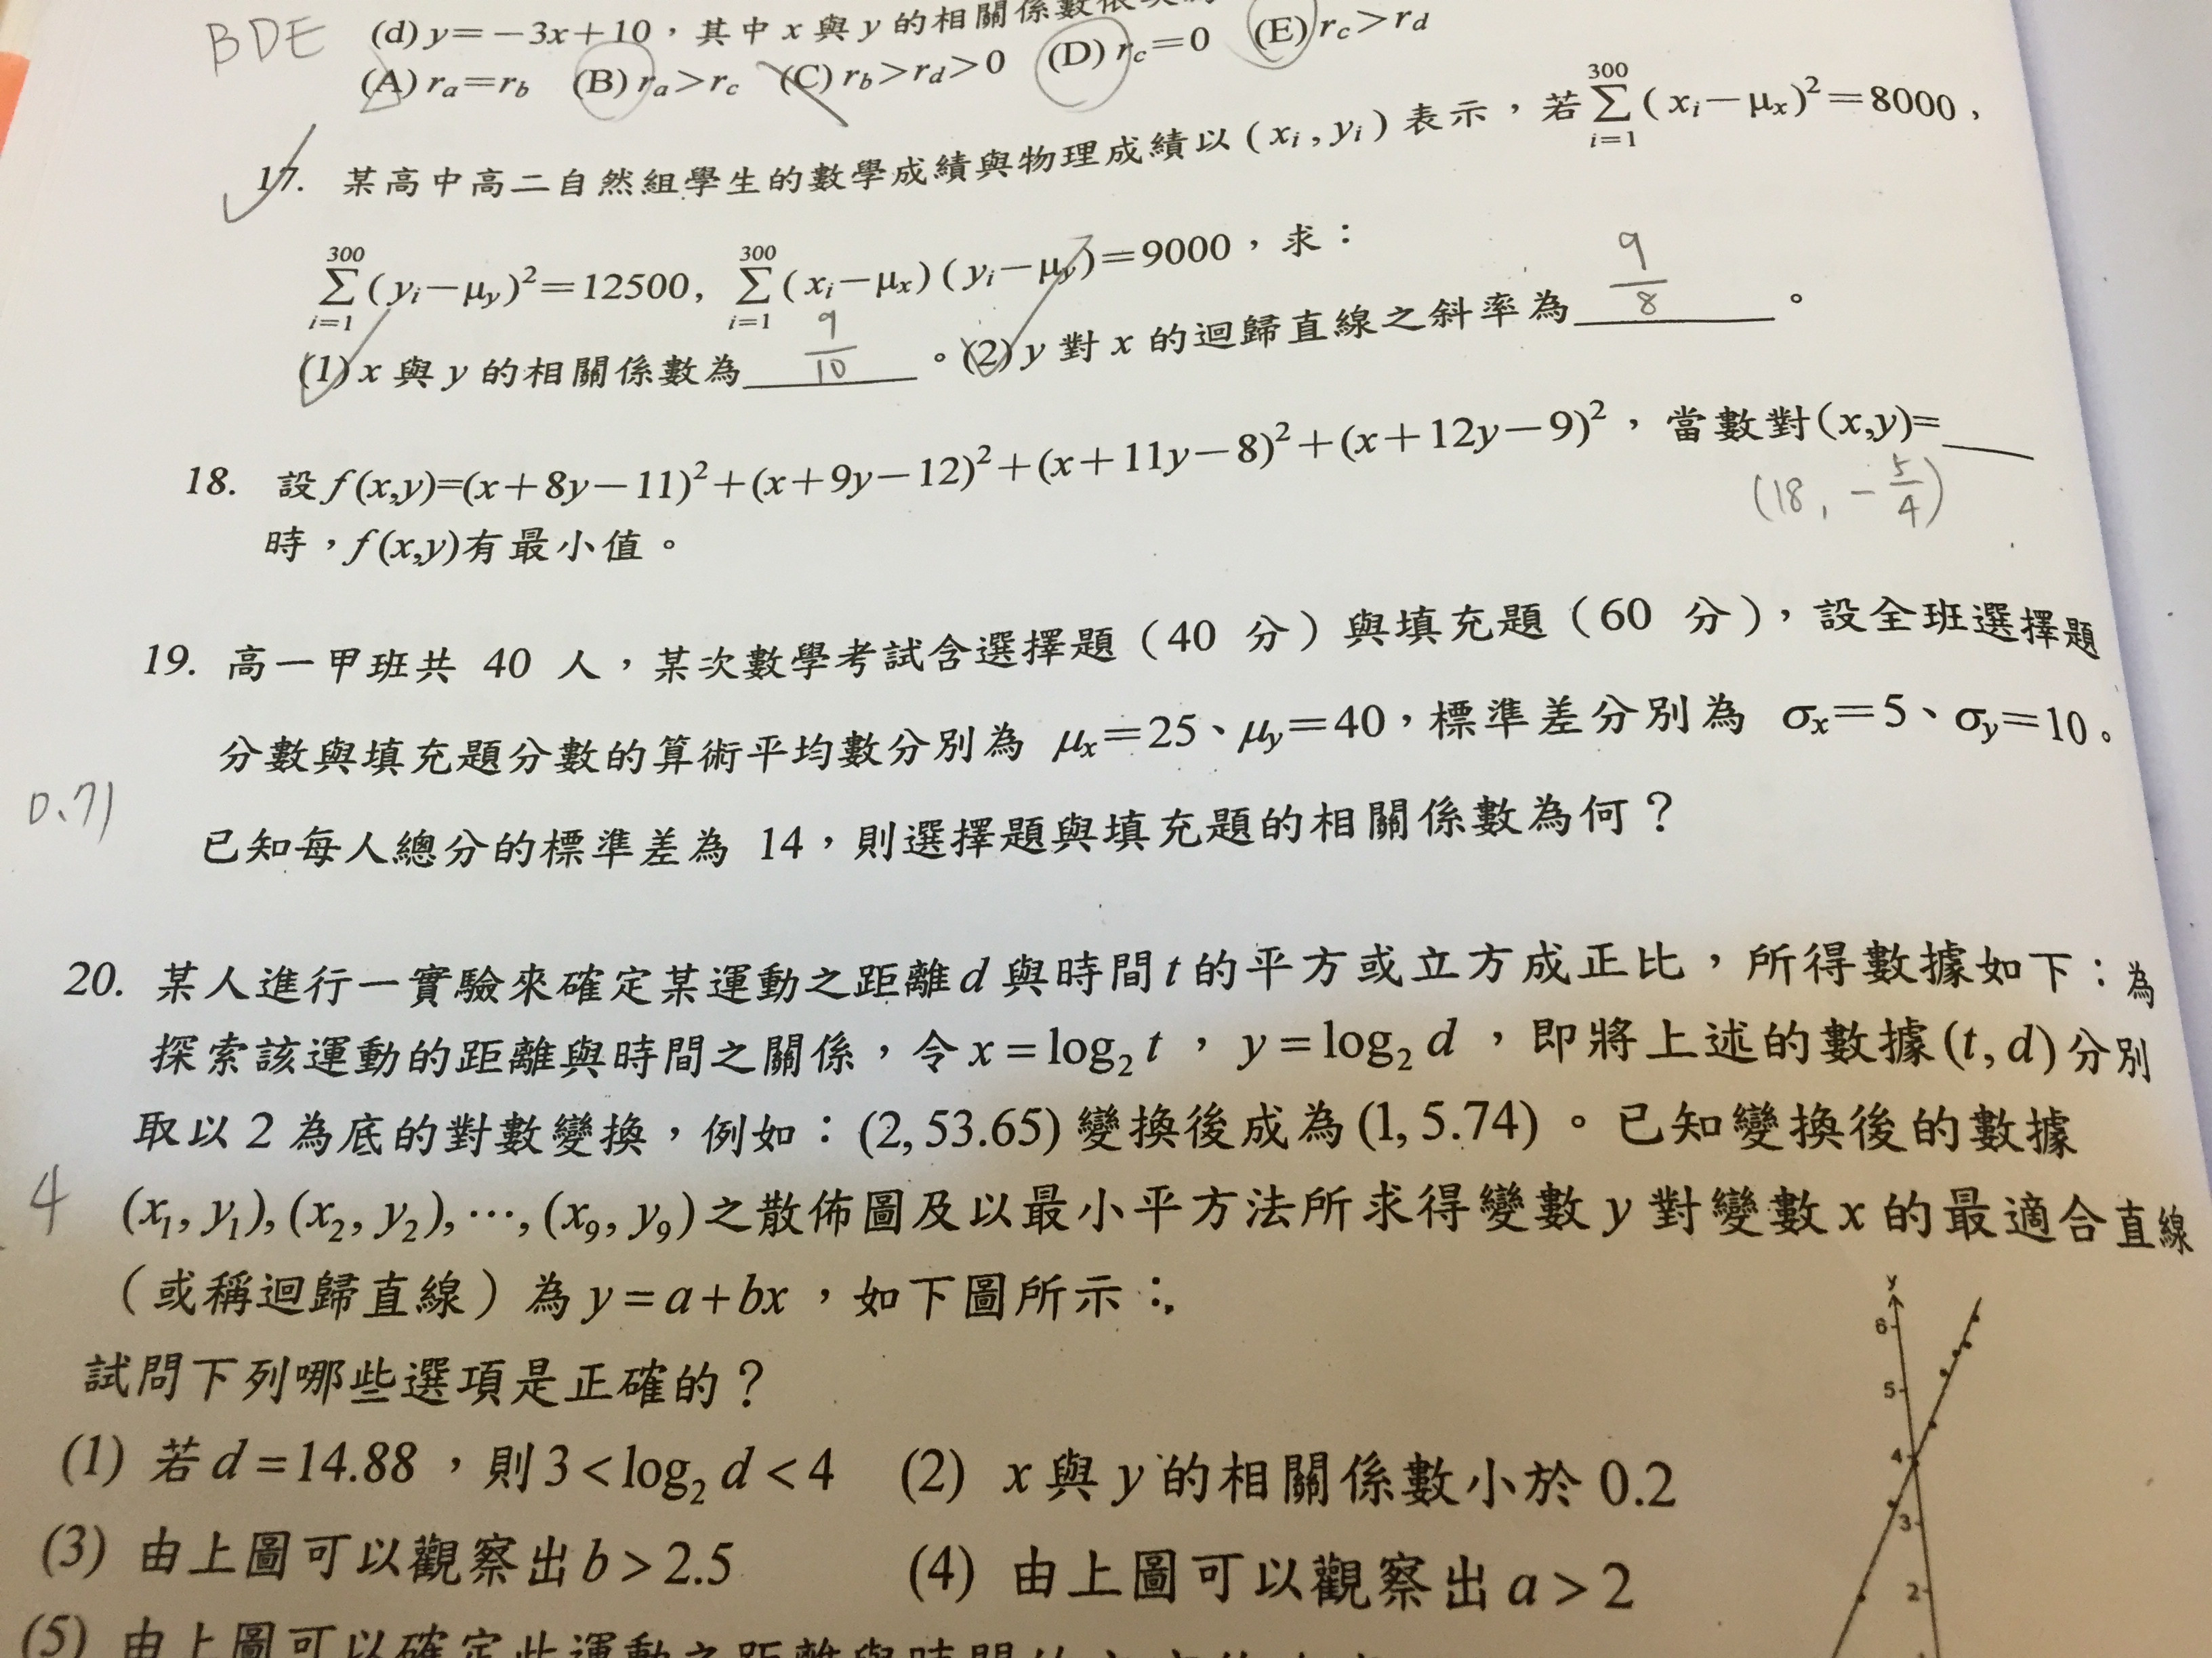 BDE (d) y=－3x+10，其中 x 與 y 的相關係數依次為
(A) ra=rb (B) ra>rc (C) rb>rd>0 (D) rc=0 (E) rc>rd
17. 某高中高二自然組學生的數學成績與物理成績以 (xi , yi) 表示，若 300 Σ i=1 (xi－μx)²=8000，
300 Σ i=1 (yi－μy)²=12500, 300 Σ i=1 (xi－μx)(yi－μy)=9000，求：
(1) x 與 y 的相關係數為 9/10 。(2) y 對 x 的迴歸直線之斜率為 9/8 。
18. 設 f(x,y)=(x+8y－11)²+(x+9y－12)²+(x+11y－8)²+(x+12y－9)²，當數對(x,y)=____
(18, －5/4)
時，f(x,y)有最小值。
19. 高一甲班共 40 人，某次數學考試含選擇題（40 分）與填充題（60 分），設全班選擇題
分數與填充題分數的算術平均數分別為 μx=25、μy=40，標準差分別為 σx=5、σy=10。
0.71
已知每人總分的標準差為 14，則選擇題與填充題的相關係數為何？
20. 某人進行一實驗來確定某運動之距離 d 與時間 t 的平方或立方成正比，所得數據如下：為
探索該運動的距離與時間之關係，令 x = log₂ t ，y = log₂ d ，即將上述的數據 (t, d) 分別
取以 2 為底的對數變換，例如：(2, 53.65) 變換後成為 (1, 5.74)。已知變換後的數據
4 (x₁, y₁), (x₂, y₂), ⋯, (x₉, y₉) 之散佈圖及以最小平方法所求得變數 y 對變數 x 的最適合直線
（或稱迴歸直線）為 y = a + bx ，如下圖所示：
y
6
5
4
3
2
試問下列哪些選項是正確的？
(1) 若 d = 14.88 ，則 3 < log₂ d < 4 (2) x 與 y 的相關係數小於 0.2
(3) 由上圖可以觀察出 b > 2.5 (4) 由上圖可以觀察出 a > 2
(5) 由上圖可以確定此運動之距離與時間的